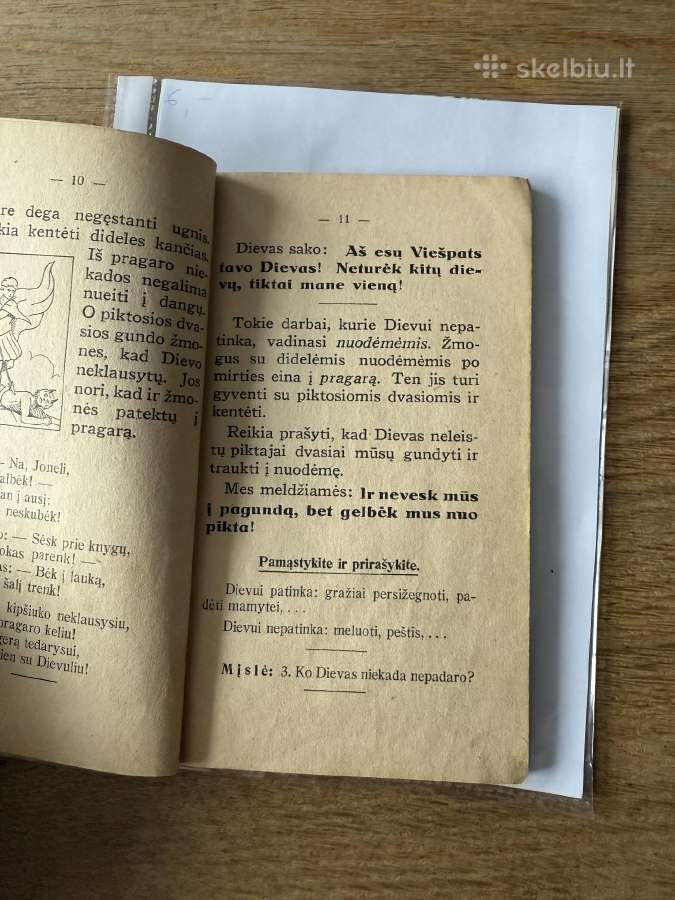 skelbiu.lt
6,-
— 10 —
dega negęstanti ugnis.
kentėti dideles kančias.
Iš pragaro nie-
kados negalima
nueiti į dangų.
O piktosios dva-
sios gundo žmo-
nes, kad Dievo
neklausytų. Jos
nori, kad ir žmo-
nės patektų į
pragarą.
— Na, Joneli,
į ausį:
neskubėk!
— Sėsk prie knygų,
parenk! —
— Bėk į lauką,
šalį trenk!
kipšiuko neklausysiu,
pragaro keliu!
gerą tedarysui,
su Dievuliu!
— 11 —
Dievas sako: Aš esų Viešpats
tavo Dievas! Neturėk kitų die-
vų, tiktai mane vieną!
Tokie darbai, kurie Dievui nepa-
tinka, vadinasi nuodėmėmis. Žmo-
gus su didelėmis nuodėmėmis po
mirties eina į pragarą. Ten jis turi
gyventi su piktosiomis dvasiomis ir
kentėti.
Reikia prašyti, kad Dievas neleis-
tų piktajai dvasiai mūsų gundyti ir
traukti į nuodėmę.
Mes meldžiamės: Ir nevesk mūs
į pagundą, bet gelbėk mus nuo
pikta!
Pamąstykite ir prirašykite.
Dievui patinka: gražiai persižegnoti, pa-
dėti mamytei, . . .
Dievui nepatinka: meluoti, peštis, . . .
Mįslė: 3. Ko Dievas niekada nepadaro?